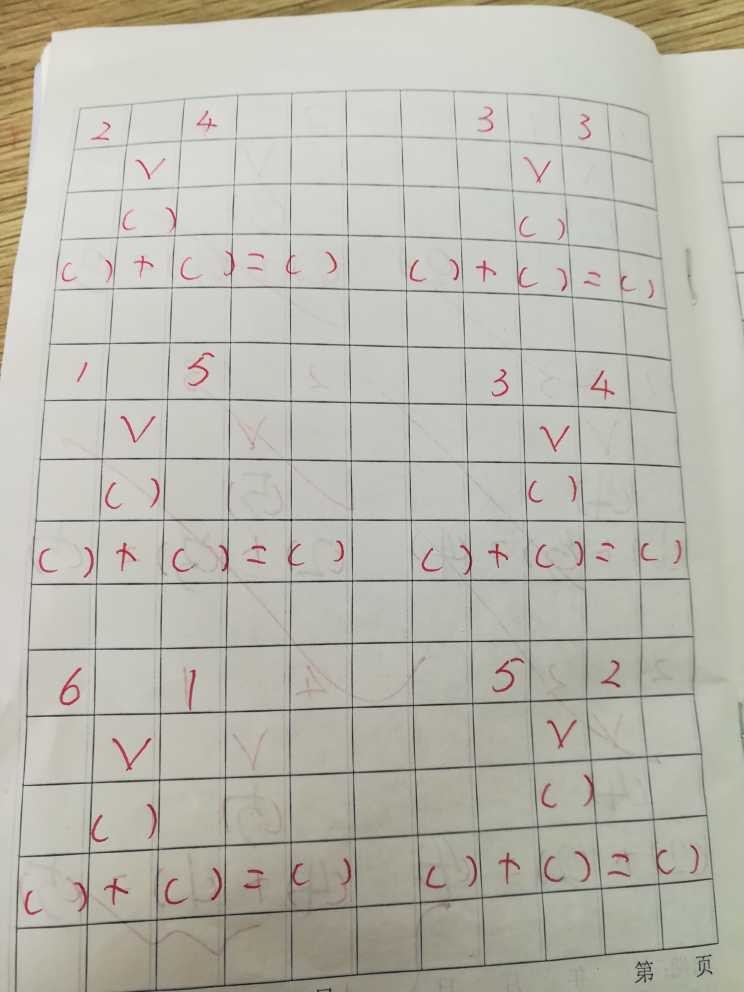 2 4 3 3
V V
( ) ( )
( ) + ( ) = ( ) ( ) + ( ) = ( )
1 5 3 4
V V
( ) ( )
( ) + ( ) = ( ) ( ) + ( ) = ( )
6 1 5 2
V V
( ) ( )
( ) + ( ) = ( ) ( ) + ( ) = ( )
第 页